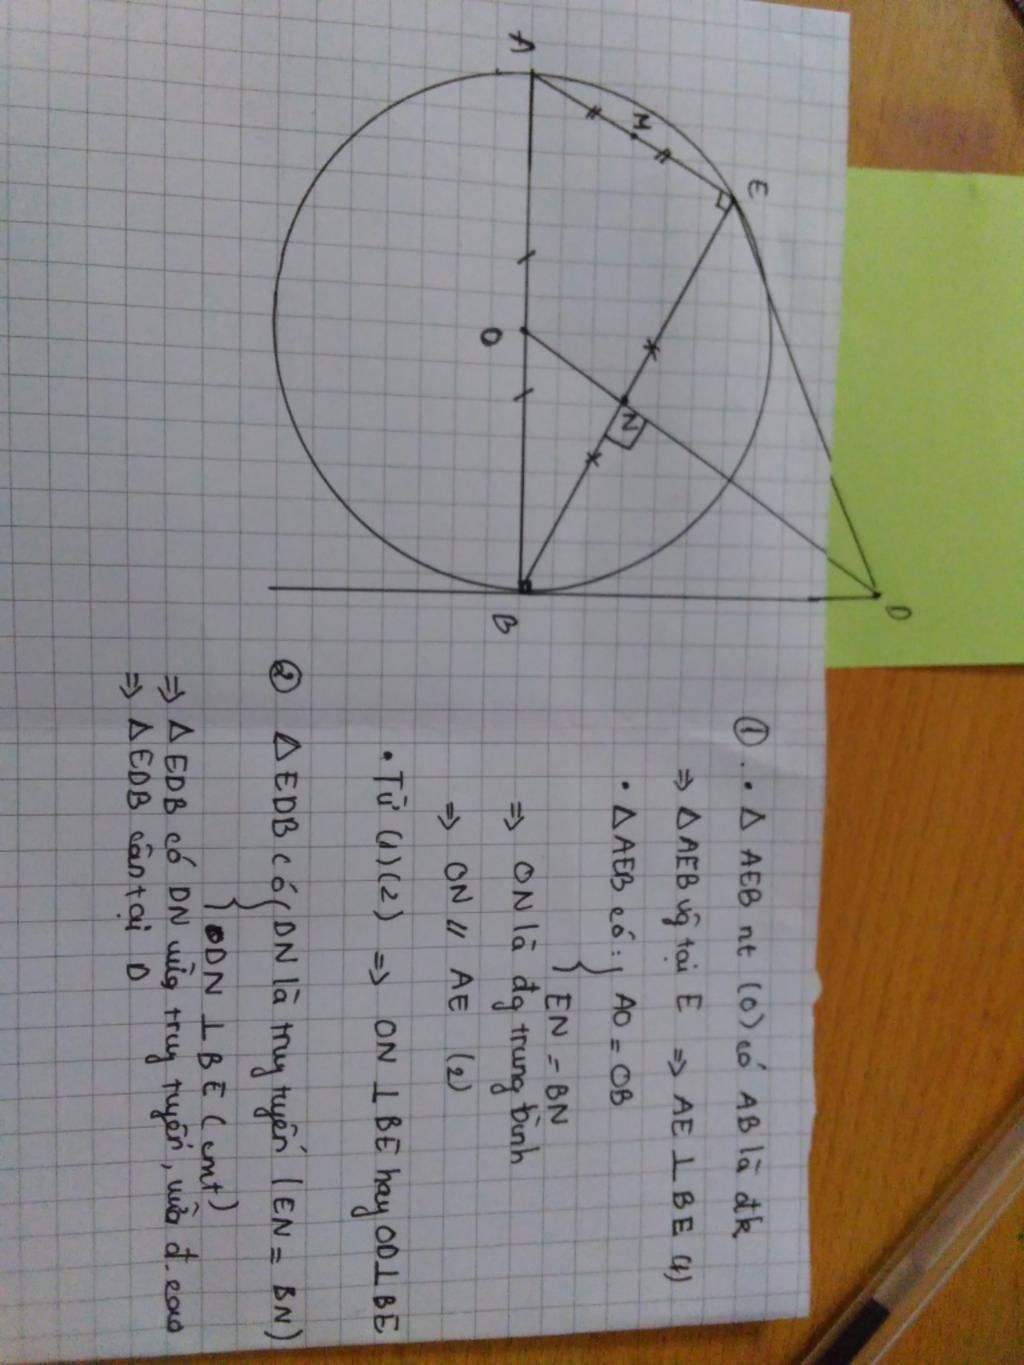 A
M
E
O
N
B
D
① . . Δ AEB nt (O) có AB là đk
=> Δ AEB vg tại E => AE ⊥ BE (1)
. Δ AEB có : { AO = OB
EN = BN
=> ON là đg trung bình
=> ON // AE (2)
. Từ (1)(2) => ON ⊥ BE hay OD ⊥ BE
② Δ EDB có { DN là trung tuyến (EN = BN)
DN ⊥ BE (cmt)
=> Δ EDB có DN vừa trung tuyến, vừa đ. cao
=> Δ EDB cân tại D